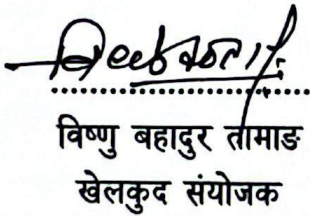 विष्णु बहादुर तामाङ
खेलकुद संयोजक